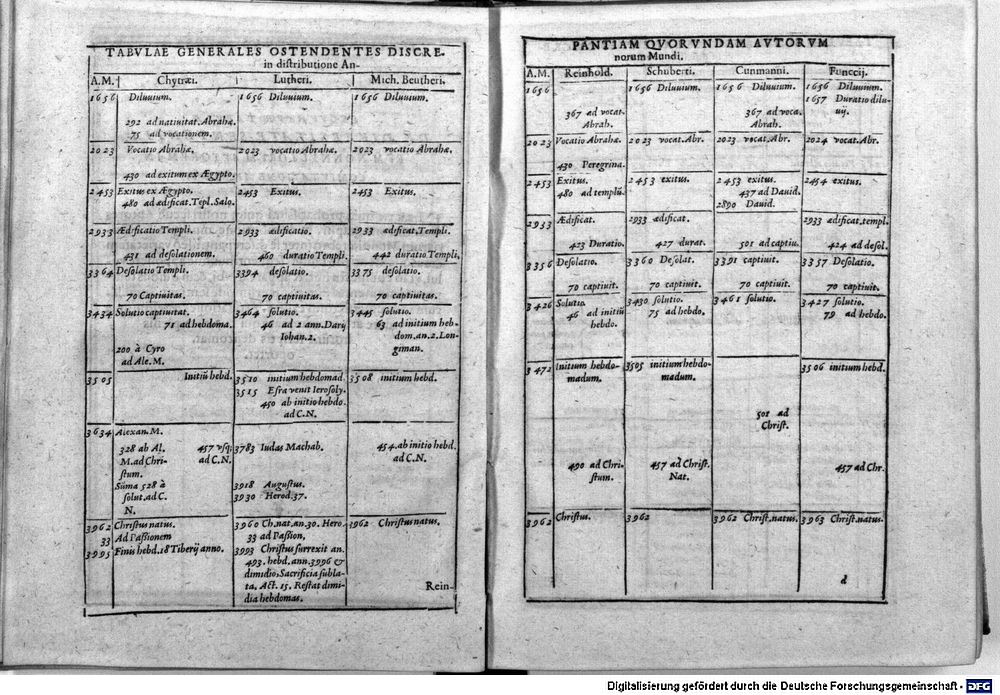 TABVLAE GENERALES OSTENDENTES DISCRE-
in distributione An-
A.M. Chytræi. Lutheri. Mich. Beutheri.
1656 Diluuium. 1656 Diluuium. 1656 Diluuium.
292 ad natiuitat. Abrahæ.
75 ad vocationem.
2023 Vocatio Abrahæ. 2023 vocatio Abrahæ. 2023 vocatio Abrahæ.
430 ad exitum ex Ægypto.
2453 Exitus ex Ægypto. 2453 Exitus. 2453 Exitus.
480 ad ædificat. Tepl. Salo.
2933 Ædificatio Templi. 2933 ædificatio. 2933 ædificat. Templi.
431 ad desolationem. 460 duratio Templi. 442 duratio Templi.
3364 Desolatio Templi. 3394 desolatio. 3375 desolatio.
70 Captiuitas. 70 captiuitas. 70 captiuitas.
3434 Solutio captiuitat. 3464 solutio. 3445 solutio.
71 ad hebdoma. 46 ad 2 ann. Darij 63 ad initium heb-
Iohan. 2. dom. an. 2. Lon-
200 à Cyro giman.
ad Ale. M.
3505 Initiū hebd. 3510 initium hebdomad. 3508 initium hebd.
3515 Esra venit Ierosoly.
450 ab initio hebdo.
ad C.N.
3634 Alexan. M.
328 ab Al. 457 vsq; 3783 Iudas Machab. 454. ab initio hebd.
M. ad Chri- ad C.N. ad C.N.
stum.
Sūma 528 à 3918 Augustus.
solut. ad C. 3930 Herod. 37.
N.
3962 Christus natus. 3960 Ch. nat. an. 30. Hero. 3962 Christus natus.
33 Ad Passionem 33 ad Passion,
3995 Finis hebd. 18 Tiberij anno. 3993 Christus surrexit an.
493. hebd. ann. 3996 &
dimidio: Sacrificia subla-
ta. Act. 15. Restat dimi-
dia hebdomas.
Rein-
PANTIAM QVORVNDAM AVTORVM
norum Mundi.
A.M. Reinhold. Schuberti. Cunmanni. Funccij.
1656 1656 Diluuium. 1656 Diluuium. 1656 Diluuium.
1657 Duratio dilu-
367 ad vocat. 367 ad voca. uij.
Abrah. Abrah.
2023 Vocatio Abrahæ. 2023 vocat. Abr. 2023 vocat. Abr. 2024 vocat. Abr.
430 Peregrina.
2453 Exitus. 2453 exitus. 2453 exitus. 2454 exitus.
480 ad templū. 437 ad Dauid.
2890 Dauid.
2933 Ædificat. 2933 ædificat. 2933 ædificat. templ.
423 Duratio. 427 durat. 501 ad captiu. 424 ad desol.
3356 Desolatio. 3360 Desolat. 3391 captiuit. 3357 Desolatio.
70 captiuit. 70 captiuit. 70 captiuit. 70 captiuit.
3426 Solutio 3430 solutio. 3461 solutio. 3427 solutio.
46 ad initiū 75 ad hebdo. 79 ad hebdo.
hebdo.
3472 Initium hebdo- 3505 initium hebdo- 3506 initium hebd.
madum. madum.
501 ad
Christ.
490 ad Chri- 457 ad Christ. 457 ad Chr.
stum. Nat.
3962 Christus. 3962 3962 Christ. natus. 3963 Christ. natus.
d
Digitalisierung gefördert durch die Deutsche Forschungsgemeinschaft - DFG